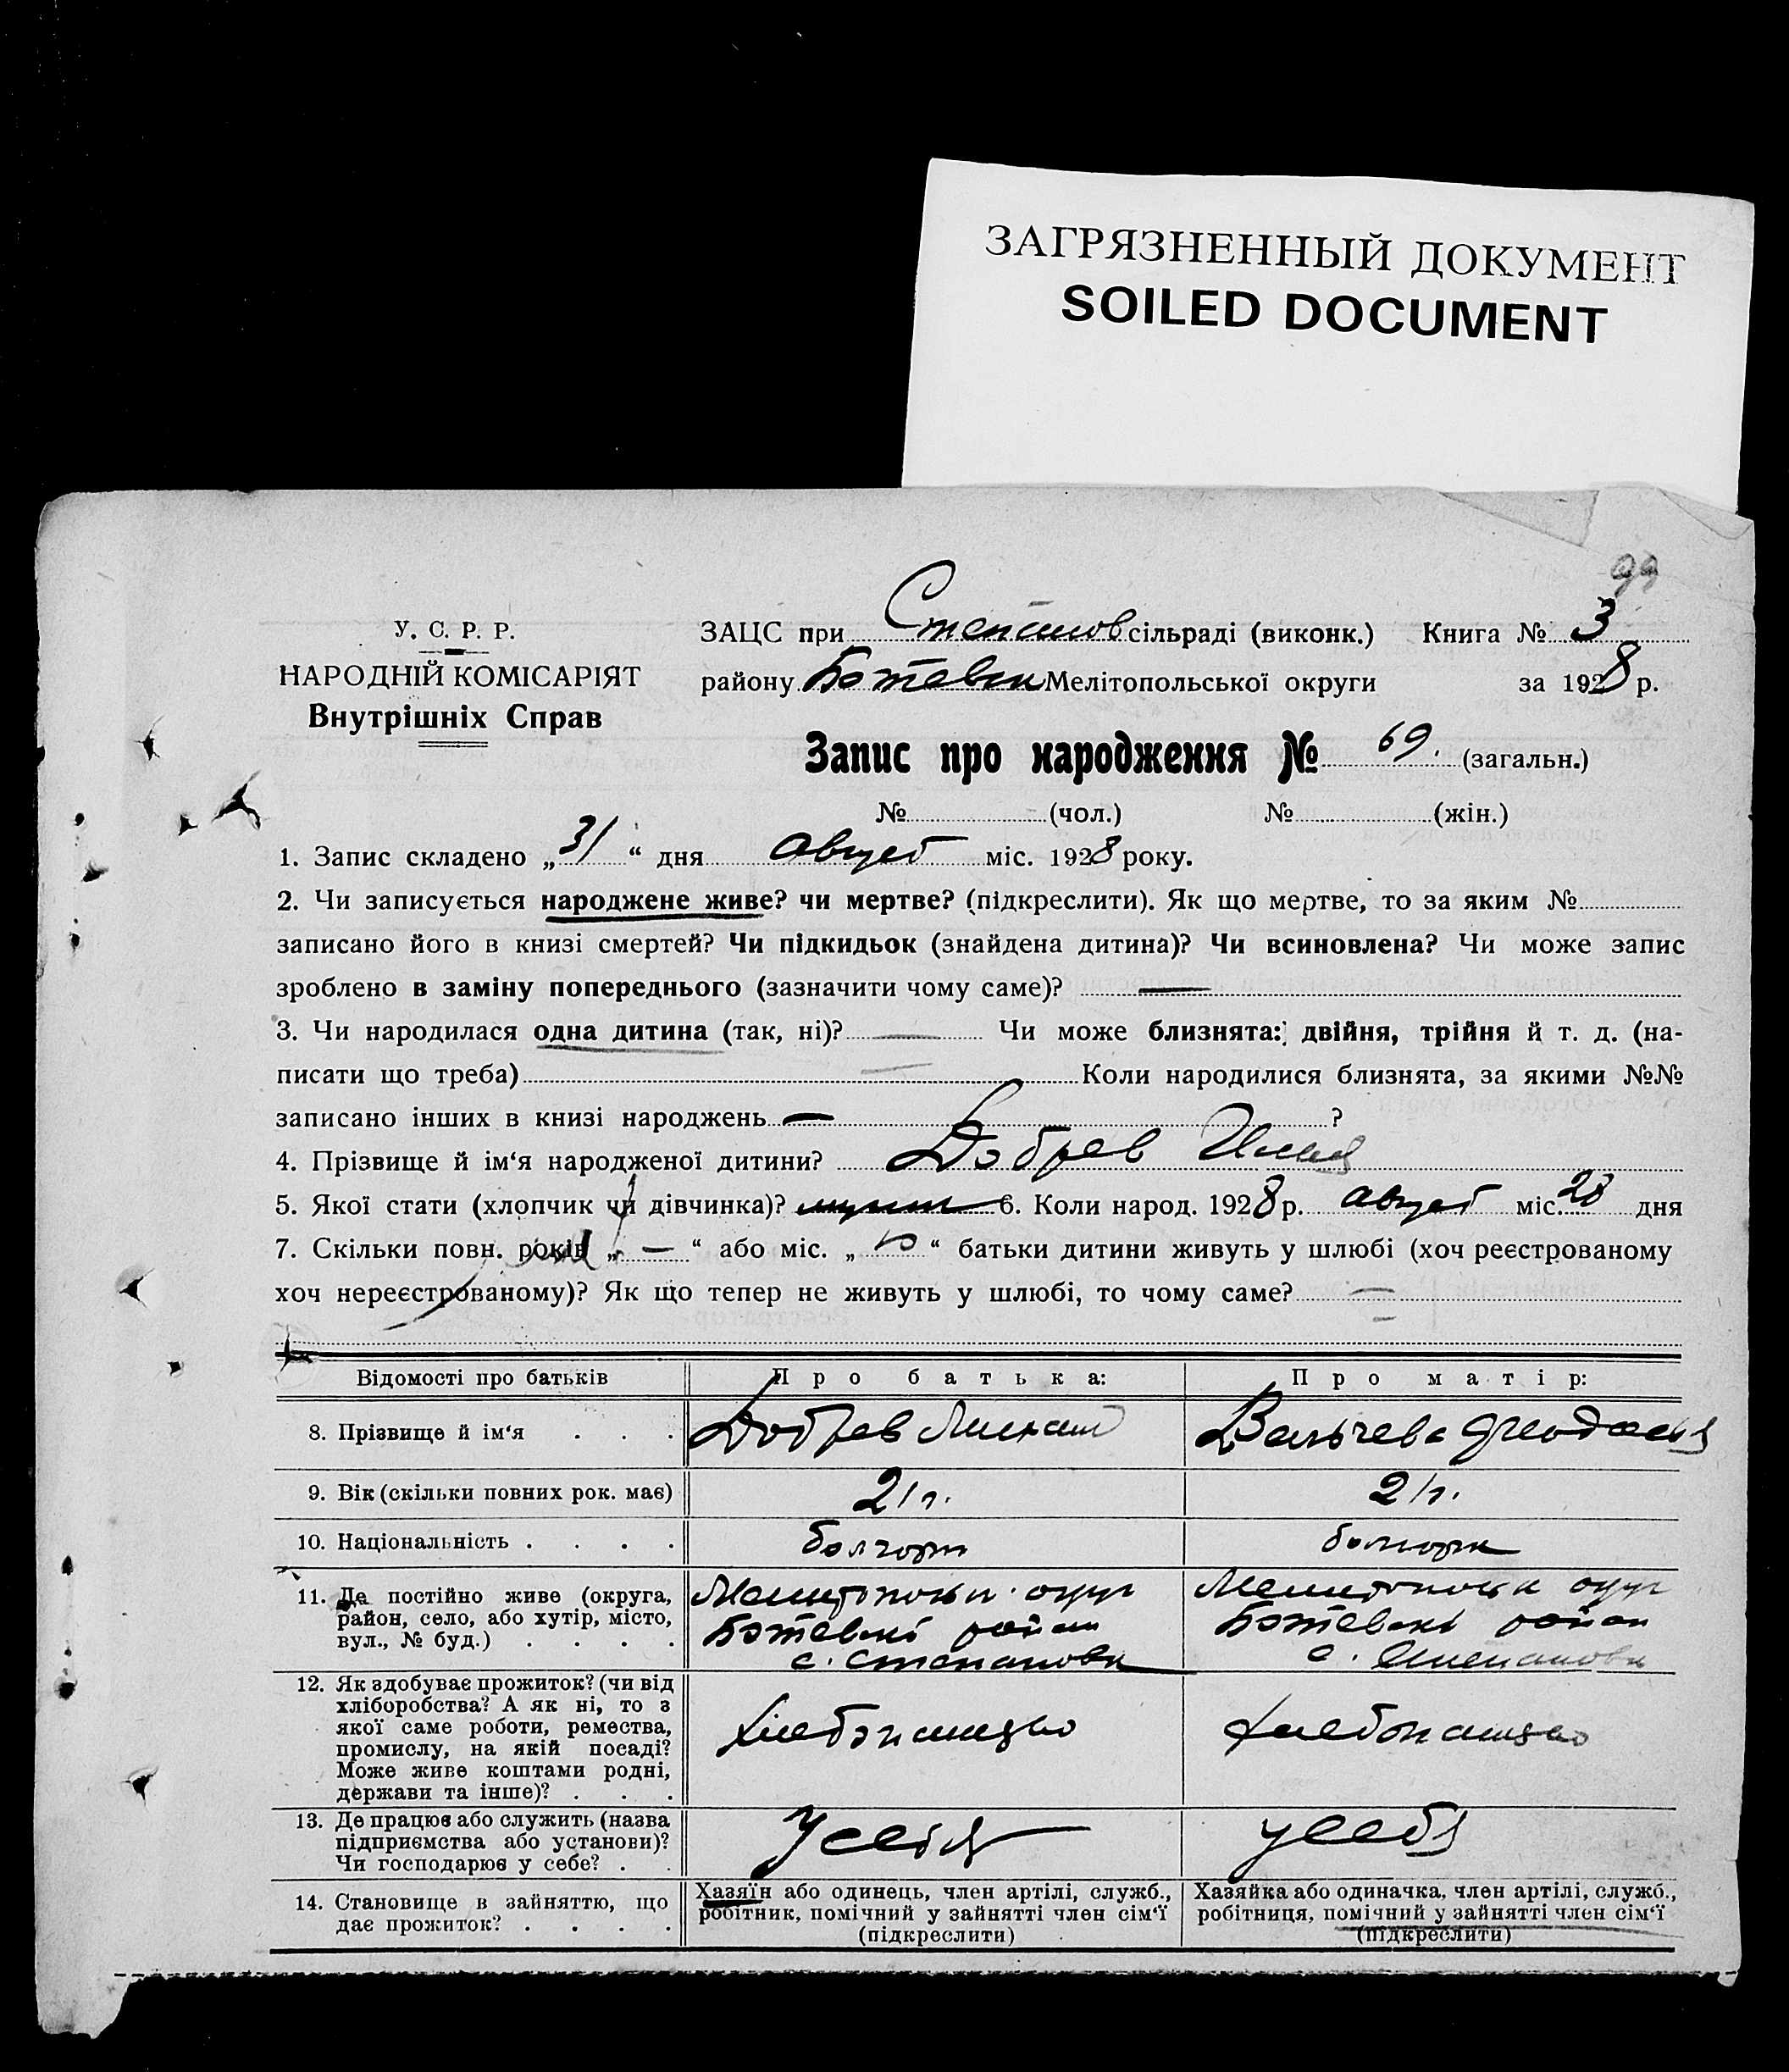 ЗАГРЯЗНЕННЫЙ ДОКУМЕНТ
SOILED DOCUMENT
99
У. С. Р. Р.
НАРОДНІЙ КОМІСАРІЯТ
Внутрішніх Справ
ЗАЦС при Степанов сільраді (виконк.) Книга № 3
району Ботевск Мелітопольської округи за 1928 р.
Запис про народження № 69. (загальн.)
№ (чол.) № (жін.)
1. Запис складено „31“ дня август міс. 1928 року.
2. Чи записується народжене живе? чи мертве? (підкреслити). Як що мертве, то за яким №
записано його в книзі смертей? Чи підкидьок (знайдена дитина)? Чи всиновлена? Чи може запис
зроблено в заміну попереднього (зазначити чому саме)? —
3. Чи народилася одна дитина (так, ні)? — Чи може близнята: двійня, трійня й т. д. (на-
писати що треба) — Коли народилися близнята, за якими №№
записано інших в книзі народжень — ?
4. Прізвище й ім‘я народженої дитини? Добрев Илья
5. Якої стати (хлопчик чи дівчинка)? 6. Коли народ. 1928 р. август міс. 28 дня
7. Скільки повн. років „ — “ або міс. „10“ батьки дитини живуть у шлюбі (хоч реєстрованому
хоч нереєстрованому)? Як що тепер не живуть у шлюбі, то чому саме? —
Відомості про батьків
Про батька:
Про матір:
8. Прізвище й ім‘я . . .
Добрев Михаил
Вальчева Феодосья
9. Вік (скільки повних рок. має)
21 г.
21 г.
10. Національність . . . .
болгорн
болгорк
11. Де постійно живе (округа,
район, село, або хутір, місто,
вул., № буд.) . . . .
Мелитопольск округ
Ботевскі район
с. Степановк
Мелитопольск округ
Ботевскі район
с. Степановк
12. Як здобуває прожиток? (чи від
хліборобства? А як ні, то з
якої саме роботи, ремества,
промислу, на якій посаді?
Може живе коштами родні,
держави та інше)? . . .
Хлебопашцво
Хлебопашцво
13. Де працює або служить (назва
підприємства або установи)?
Чи господарює у себе? . .
У себя
у себя
14. Становище в зайняттю, що
дає прожиток? . . . .
Хазяїн або одинець, член артілі, служб.,
робітник, помічний у зайнятті член сім‘ї
(підкреслити)
Хазяйка або одиначка, член артілі, служб.,
робітниця, помічний у зайнятті член сім‘ї
(підкреслити)